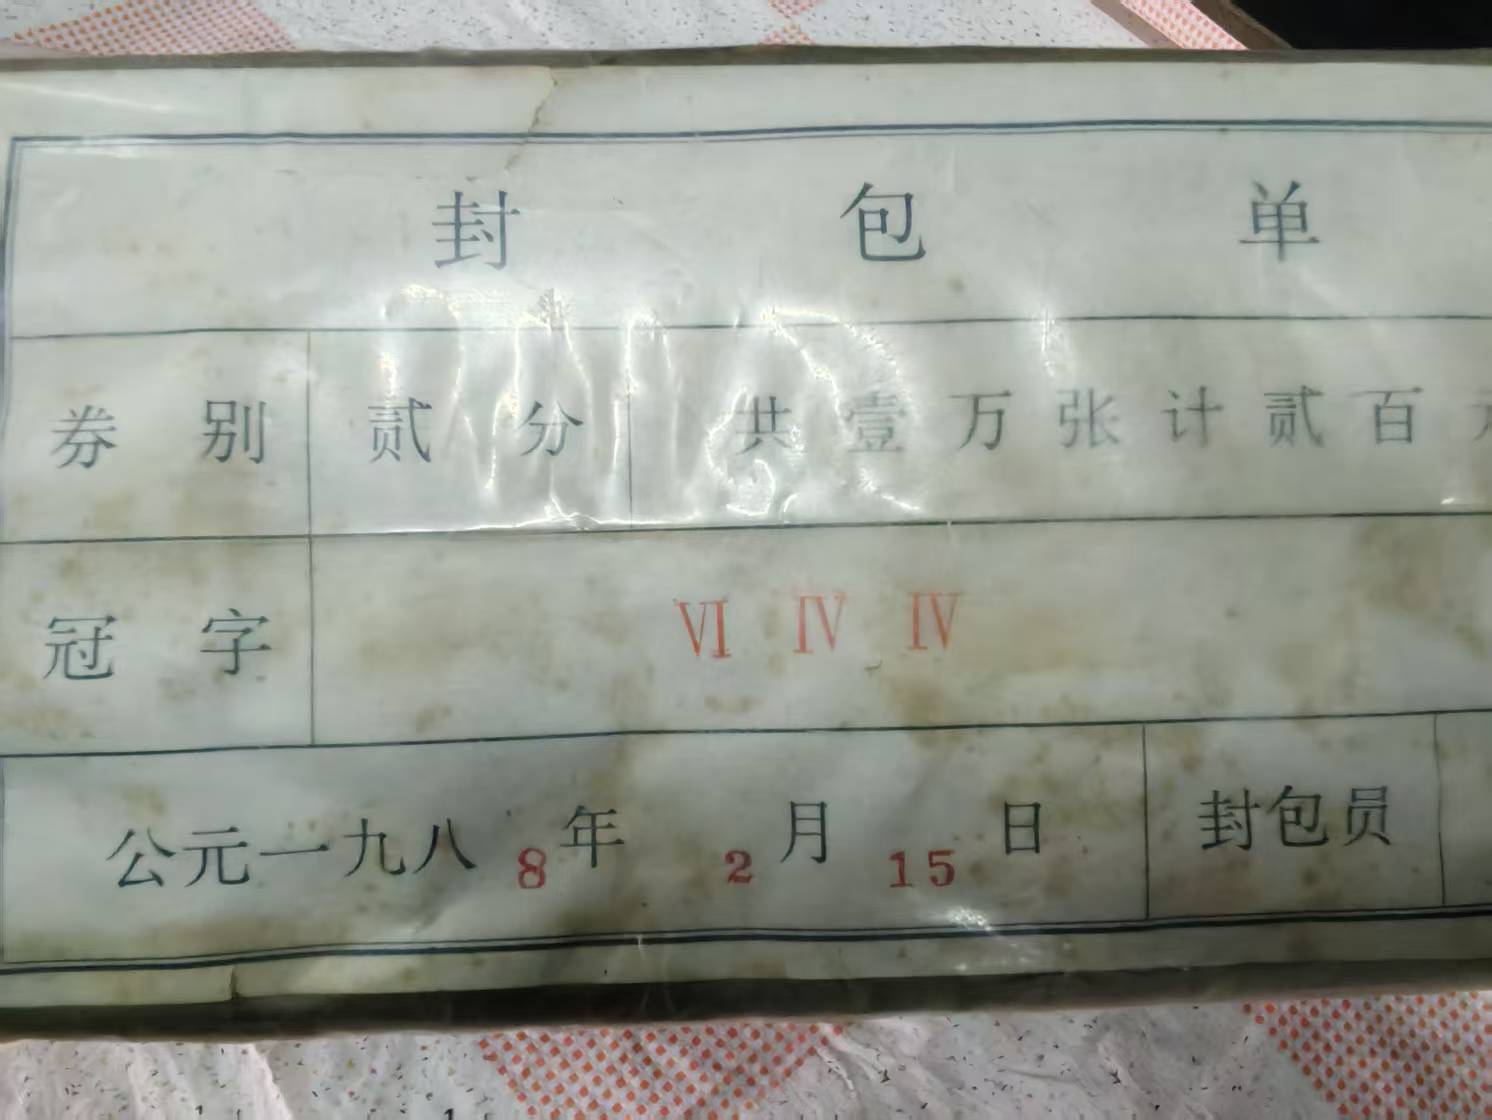 封包单
券别 贰分 共壹万张计贰百
冠字 Ⅵ Ⅳ Ⅳ
公元一九八8年2月15日 封包员